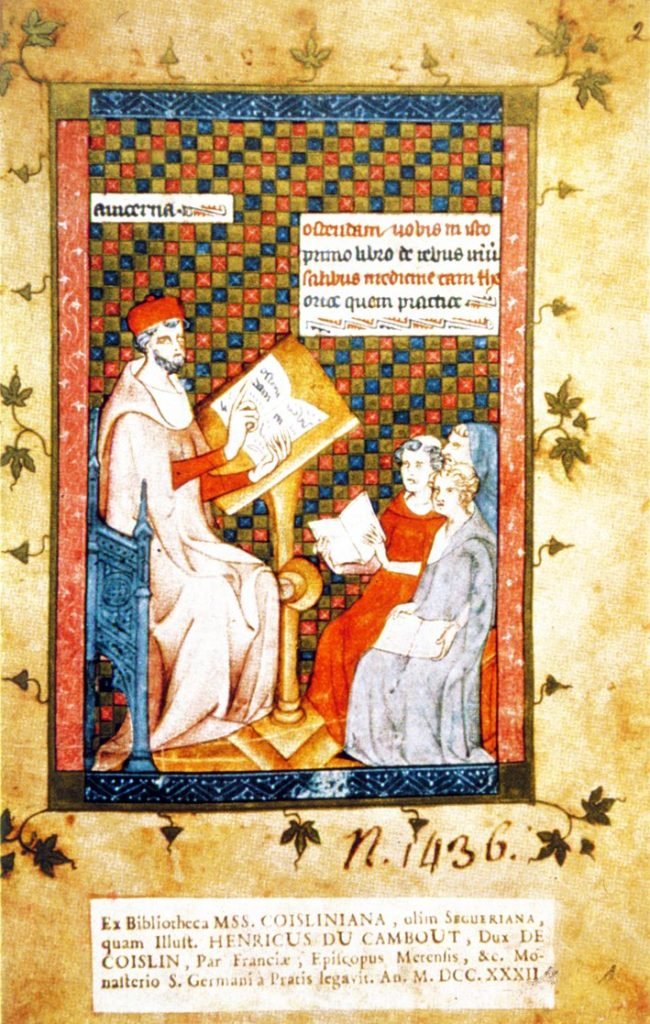 2
auicenna
ostendam uobis in isto
primo libro de rebus uniũ
salibus medicine tam the
orice quem practice
N. 1436.
Ex Bibliotheca MSS. COISLINIANA, olim SEGUERIANA,
quam Illust. HENRICUS DU CAMBOUT, Dux DE
COISLIN, Par Franciæ, Episcopus Metensis, &c. Mo-
nasterio S. Germani à Pratis legavit. An. M. DCC. XXXII
A